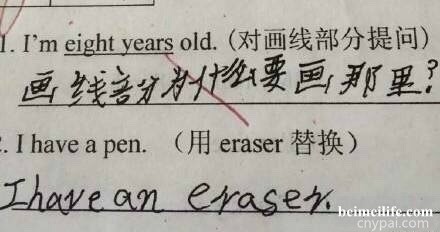 1. I'm eight years old. (对画线部分提问)
画线部分为什么要画那里?
2. I have a pen. （用 eraser 替换）
I have an eraser.
beimeilife.com
cnypai.com